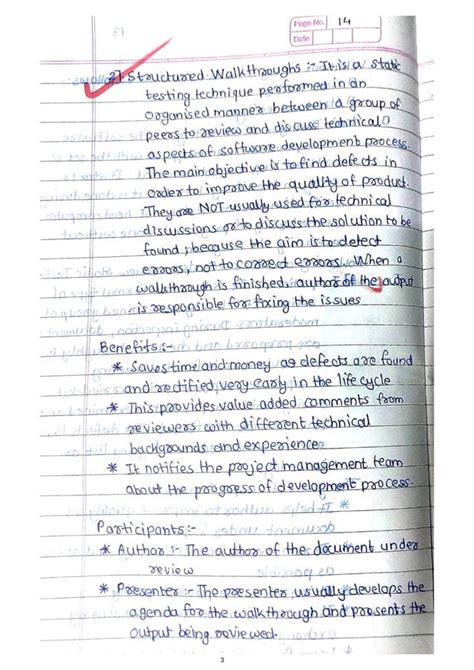 Page No. 14
Date
2] Structured Walkthroughs :- It is a static
testing technique performed in an
organised manner between a group of
peers to review and discuss technical
aspects of software development process.
The main objective is to find defects in
order to improve the quality of product.
They are NOT usually used for technical
discussions or to discuss the solution to be
found, because the aim is to detect
errors, not to correct errors. When a
walkthrough is finished, author of the output
is responsible for fixing the issues
Benefits :-
* Saves time and money as defects are found
and rectified very early in the life cycle
* This provides value added comments from
reviewers with different technical
backgrounds and experience
* It notifies the project management team
about the progress of development process.
Participants :-
* Author :- The author of the document under
review
* Presenter :- The presenter usually develops the
agenda for the walkthrough and presents the
output being reviewed.
3